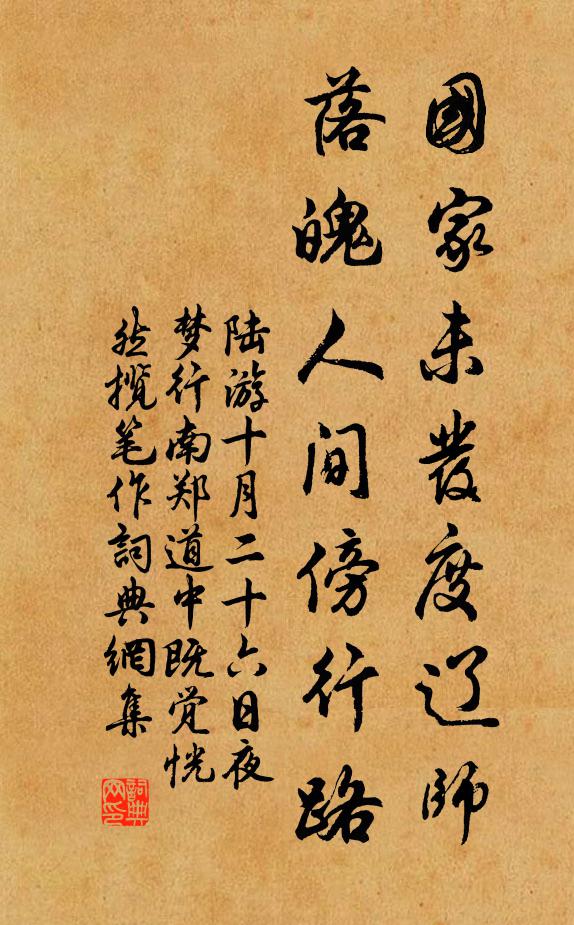 國家未發度辽師
落魄人间傍行路
陆游十月二十六日夜
梦行南郑道中既觉恍
然揽笔作詞典網集
詞典网印